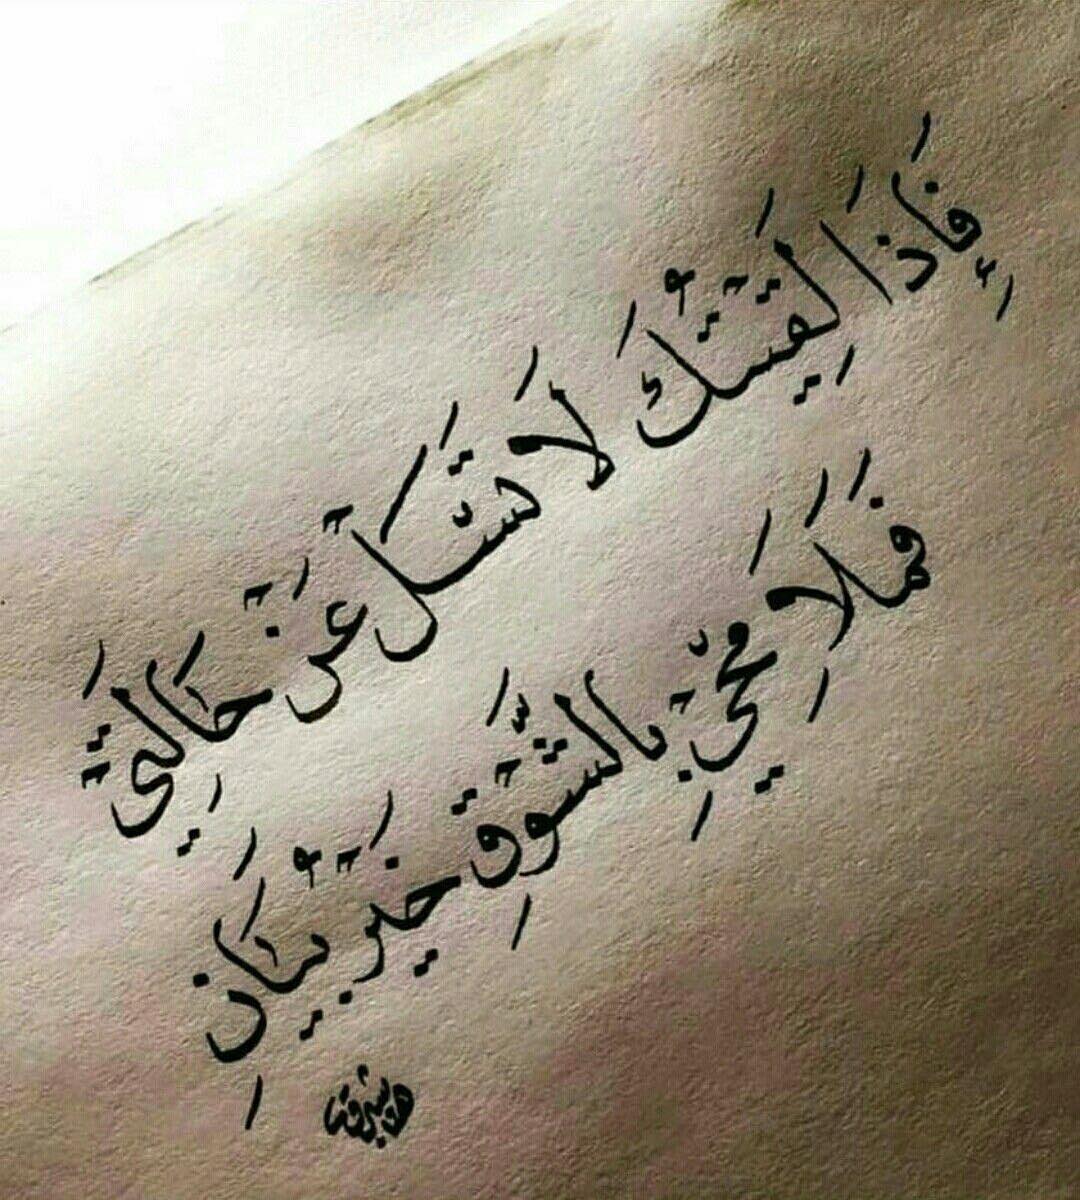 فَإِذَا لَقِيْتُكَ لَا تَسَلْ عَنْ حَالَتِيْ
فَمَلَامِحِيْ بِالشَّوْقِ خَيْرُ بَيَانِ